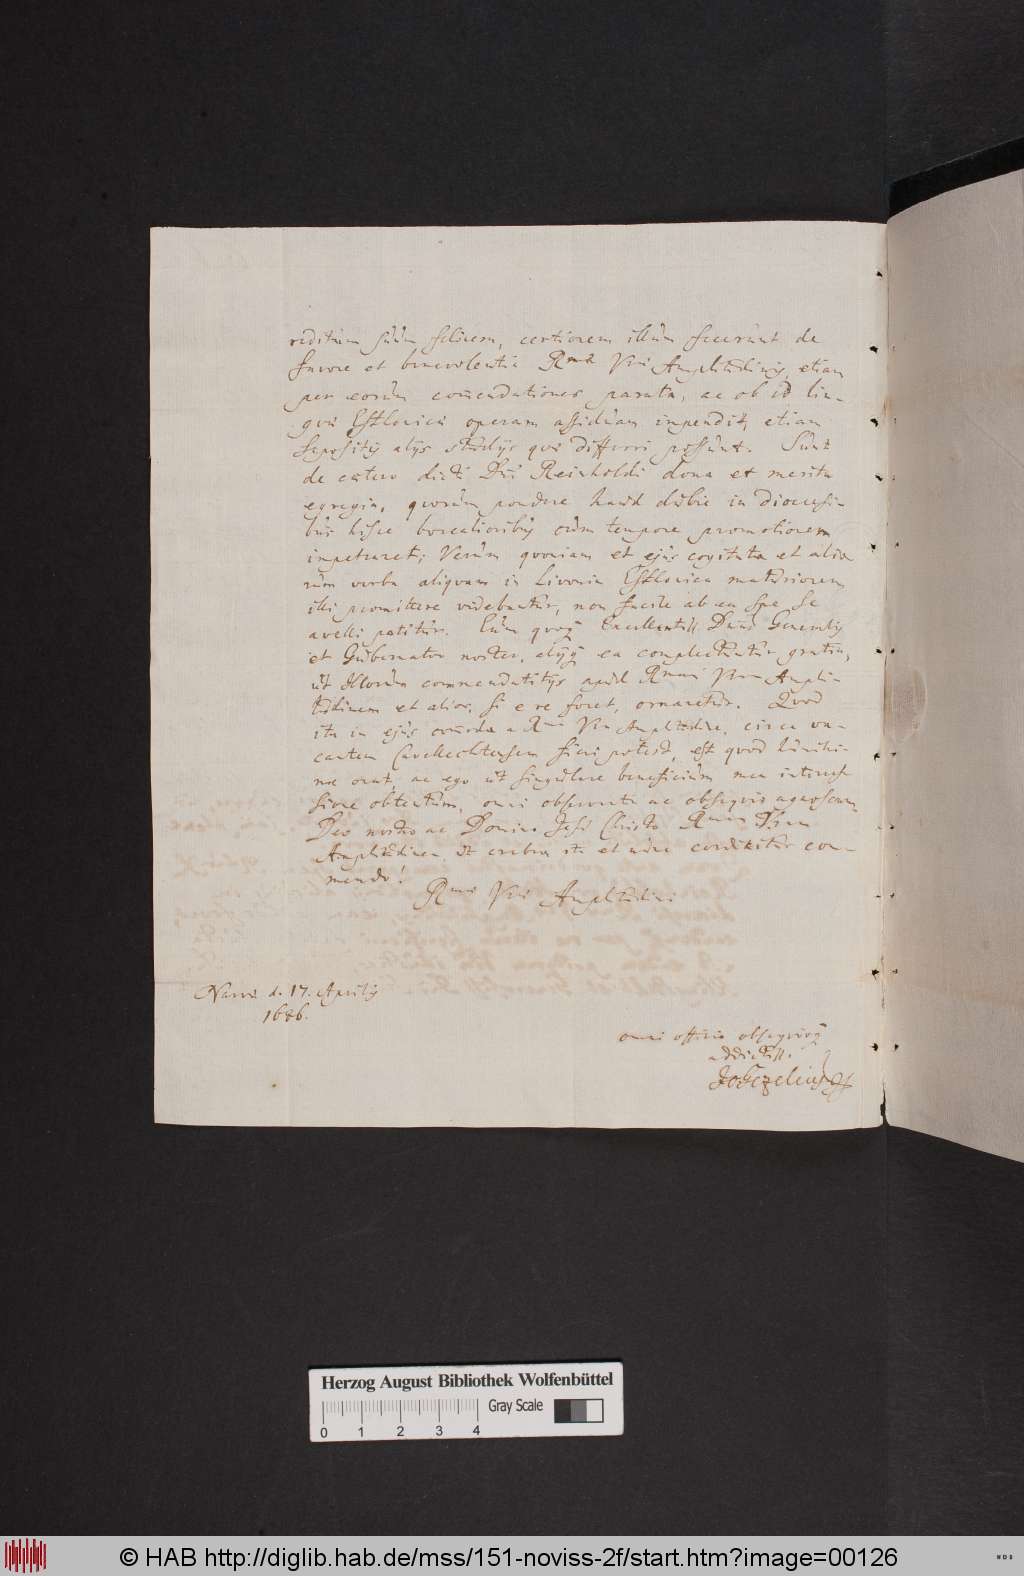 reditum suum scirem, certiorem illum fecerunt de
favore et benevolentia Rmæ Vræ Amplitudinis, etiam
per eorum com̃endationes parata, ac ob id lin-
guæ Esthonicæ operam assiduam impendit, etiam
sepositis alijs studijs quæ differri possunt. Sunt
de cætero dicti Dñi Reinholdi dona et merita
egregia, quorum pondere haud dubie in dioecesi-
bus hisce borealioribus cum tempore promotionem
impetraret; Verum quoniam et ejus cogitata et alio
rum verba aliquam in Livonia Esthonica maturiorem
illi promittere videbantur, non facile ab ea spe se
avelli patitur. Cum quoq; Excellentiss. Dnus Generalis
et Gubernator noster, eũq; ea complectuntur gratia,
ut illorum commendatitijs apud Rmam Vram Ampli-
tudinem et alios, si e re foret, ornaretur. Quod
ita in ejus com̃oda a Rma Vra Amplitudine, circa va-
cantem fieri potest, est quod humilli-
me orat, ac ego ut singulare beneficium mea interces-
sione obtentum, omni observantia ac obsequio agnoscam
Deo nostro ac Domino Jesu Christo Rmam Vram
Amplitudinem, ut crebra ita et nunc cordicitus com-
mendo!
Rmæ Vræ Amplitudini
Narvæ d. 17. Aprilis
1686.
omni officio obsequioq;
addictiss.
JoGezelius
Herzog August Bibliothek Wolfenbüttel
Gray Scale
0 1 2 3 4
© HAB http://diglib.hab.de/mss/151-noviss-2f/start.htm?image=00126